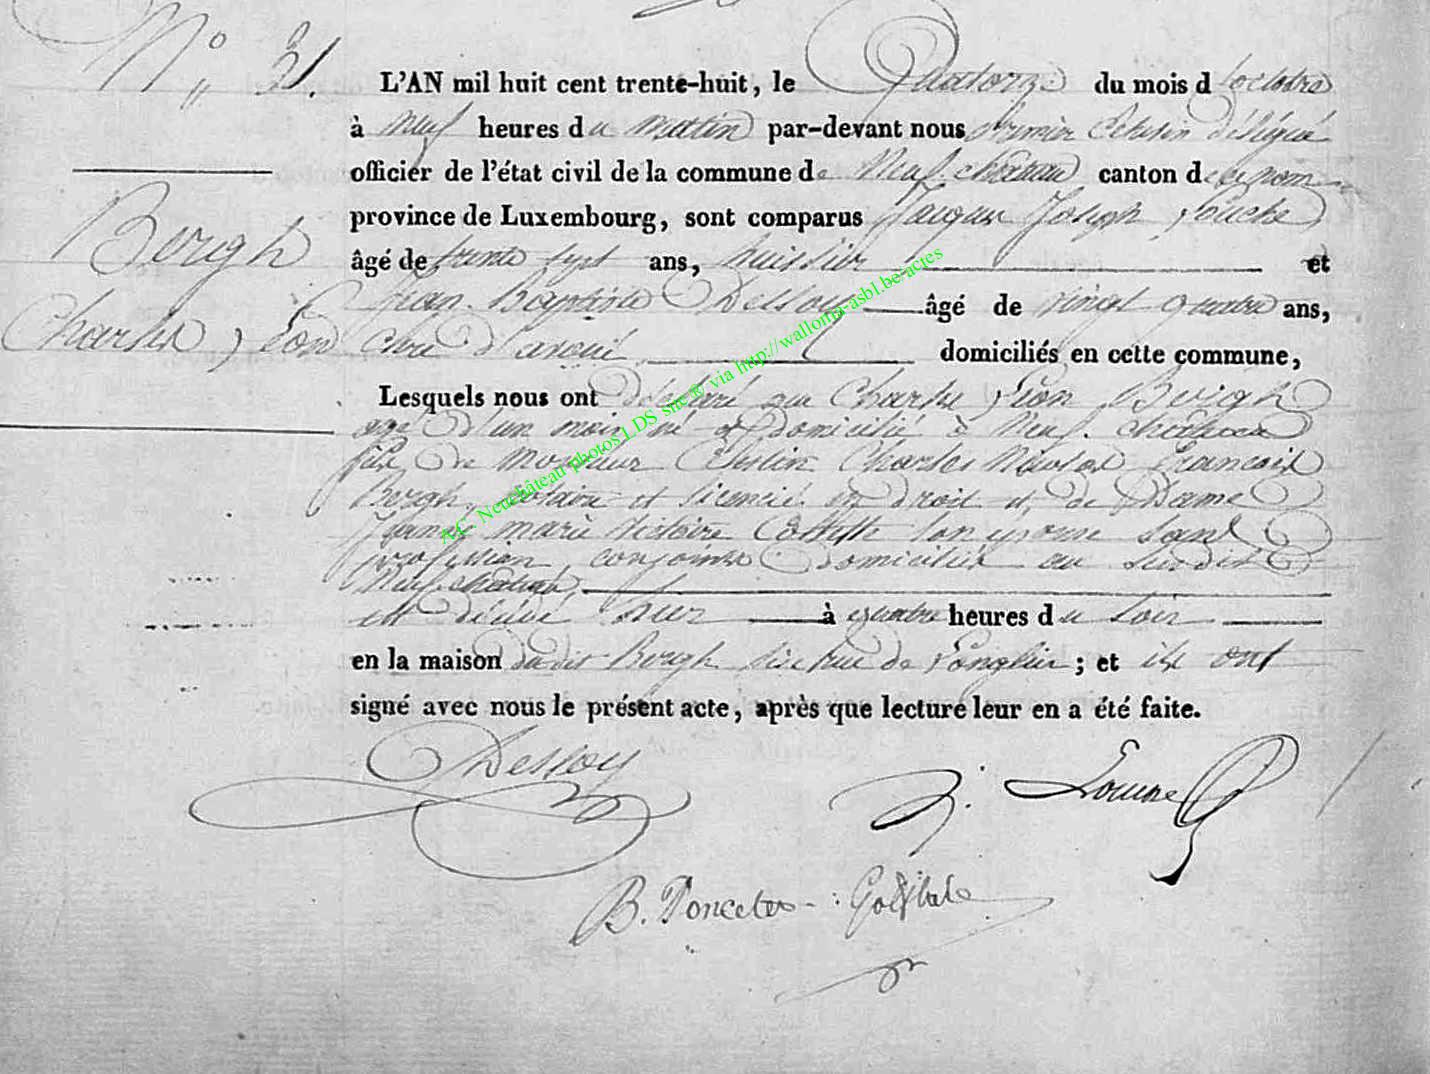 N° 31.
L'AN mil huit cent trente-huit, le Quatorze du mois d'octobre
à neuf heures du matin par-devant nous premier Echevin délégué
officier de l'état civil de la commune de Neufchateau canton de ce nom
province de Luxembourg, sont comparus Jacques Joseph
Bergh
âgé de trente sept ans, huissier et
Jean Baptiste Dessoy âgé de vingt quatre ans,
Charles, Léon
clerc d'avoué domiciliés en cette commune,
Lesquels nous ont déclaré que Charles Léon Bergh
agé d'un mois né et domicilié à Neufchateau
fils de Monsieur Célestin Charles Nicolas François
Bergh, notaire et licencié en droit et de Dame
Jeanne marie victoire son épouse sans
profession, conjoints domiciliés au susdit
Neufchateau,
est décédé hier à quatre heures du soir
en la maison dudit Bergh sise rue de Longlier ; et ils ont
signé avec nous le présent acte, après que lecture leur en a été faite.
Dessoy J.
B. Poncelet
A.C. Neuchâteau photos LDS site® via http://wallonia-asbl.be/actes